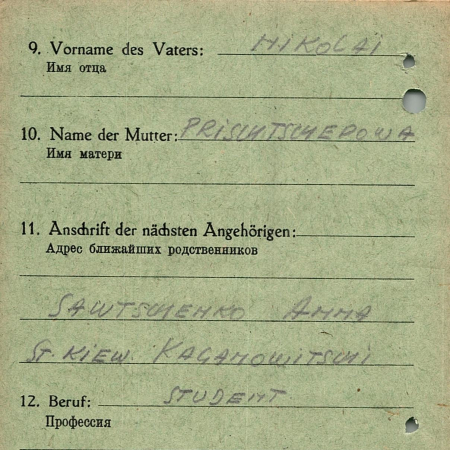 9. Vorname des Vaters: NIKOLAI
Имя отца
10. Name der Mutter: PRISCHTSCHEPOWA
Имя матери
11. Anschrift der nächsten Angehörigen:
Адрес ближайших родственников
SAWTSCHENKO ANNA
ST. KIEW. KAGANOWITSCHI
12. Beruf: STUDENT
Профессия